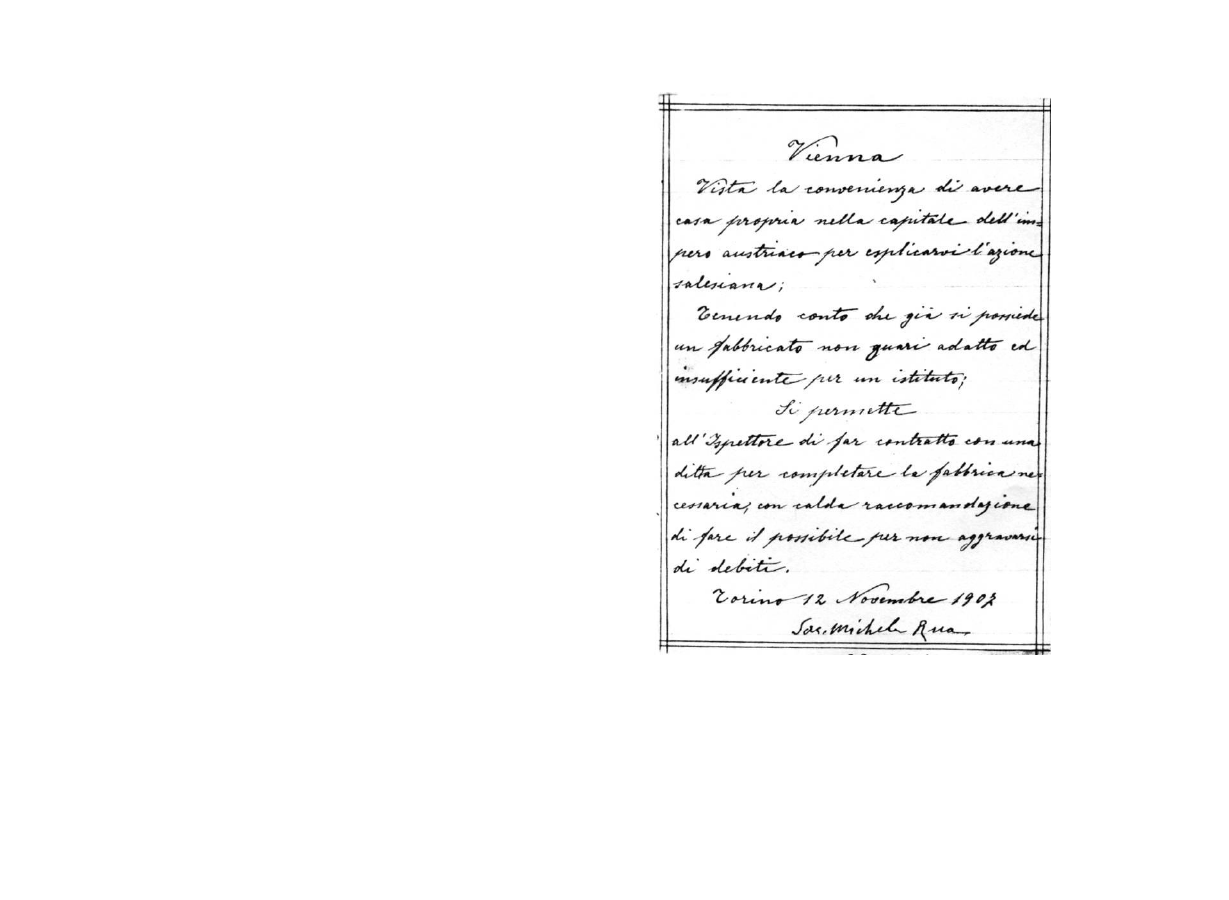 Vienna
Vista la convenienza di avere
casa propria nella capitale dell'im=
pero austriaco per esplicarvi l'azione
salesiana;
Tenendo conto che già si possiede
un fabbricato non guari adatto ed
insufficiente per un istituto;
Si permette
all'Ispettore di far contratto con una
ditta per completare la fabbrica ne=
cessaria; con calda raccomandazione
di fare il possibile per non aggravarsi
di debiti.
Torino 12 Novembre 1907
Sac. Michele Rua